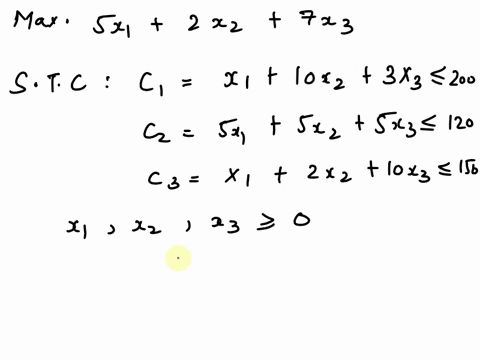 Max. 5x₁ + 2x₂ + 7x₃
S.T.C : C₁ = x₁ + 10x₂ + 3x₃ ≤ 200
C₂ = 5x₁ + 5x₂ + 5x₃ ≤ 120
C₃ = x₁ + 2x₂ + 10x₃ ≤ 150
x₁ , x₂ , x₃ ≥ 0